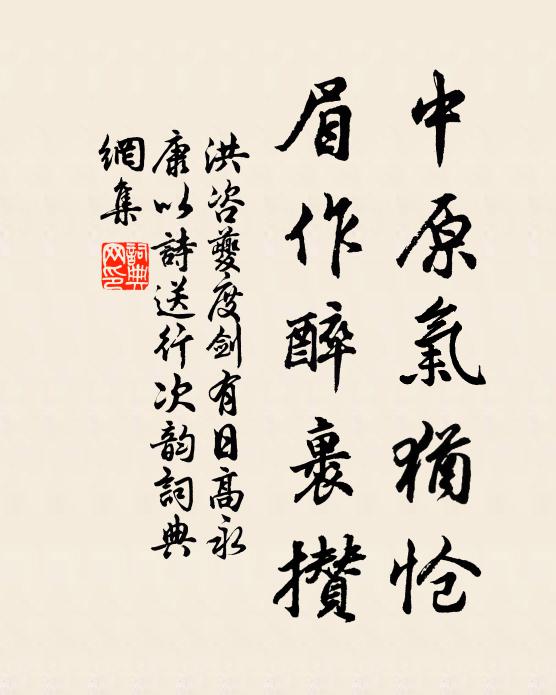 中原氣猶怆
眉作醉裏攢
洪咨夔度劍有日高永
康以詩送行次韵詞典
網集
詞典
网印